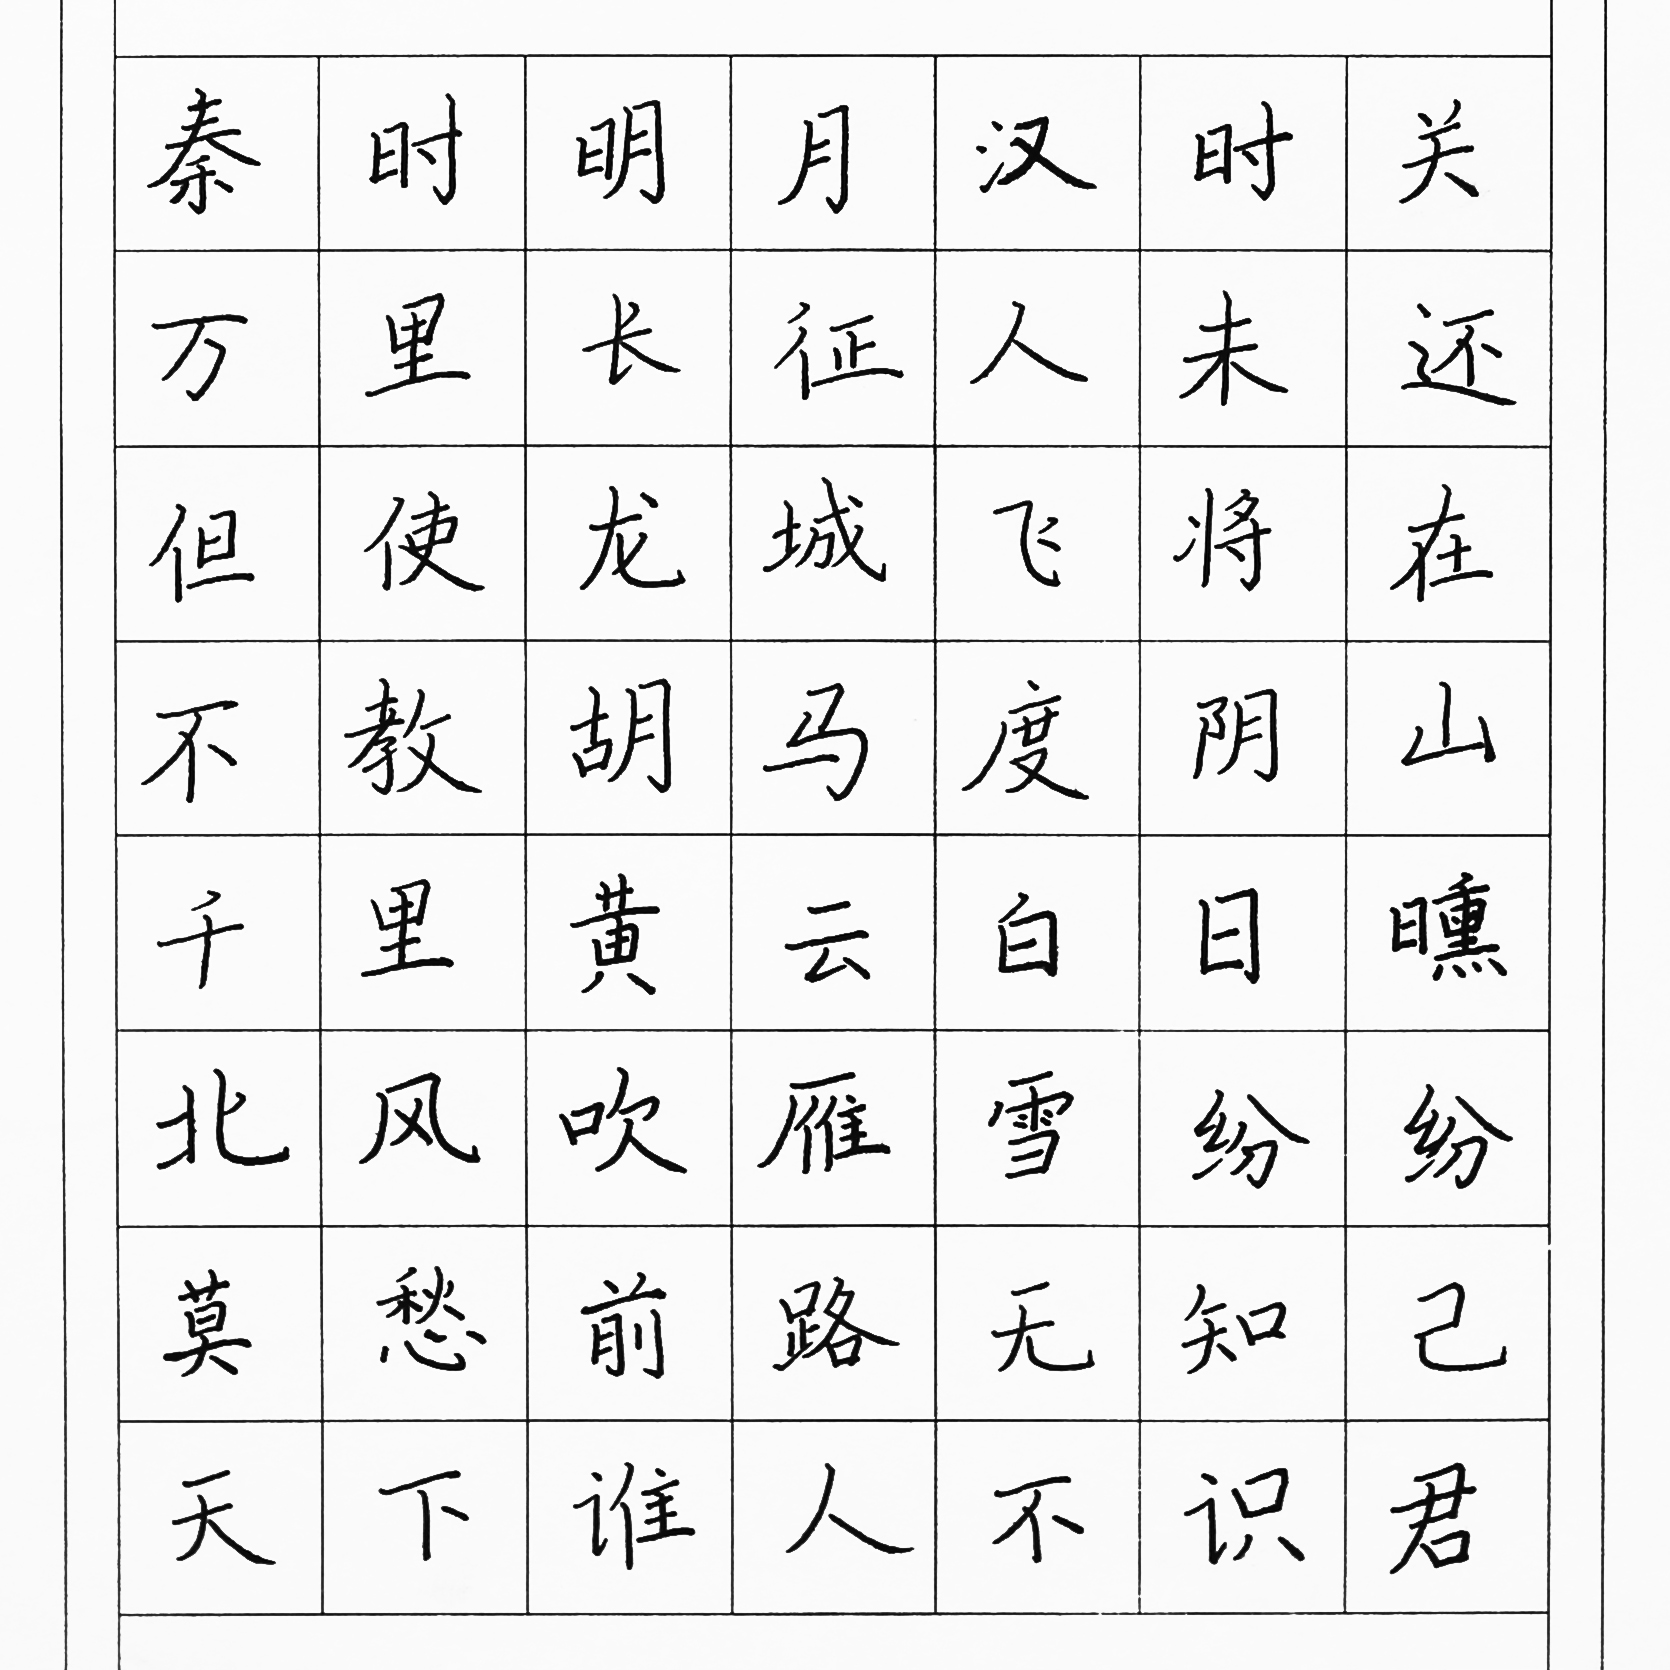 秦时明月汉时关
万里长征人未还
但使龙城飞将在
不教胡马度阴山
千里黄云白日曛
北风吹雁雪纷纷
莫愁前路无知己
天下谁人不识君